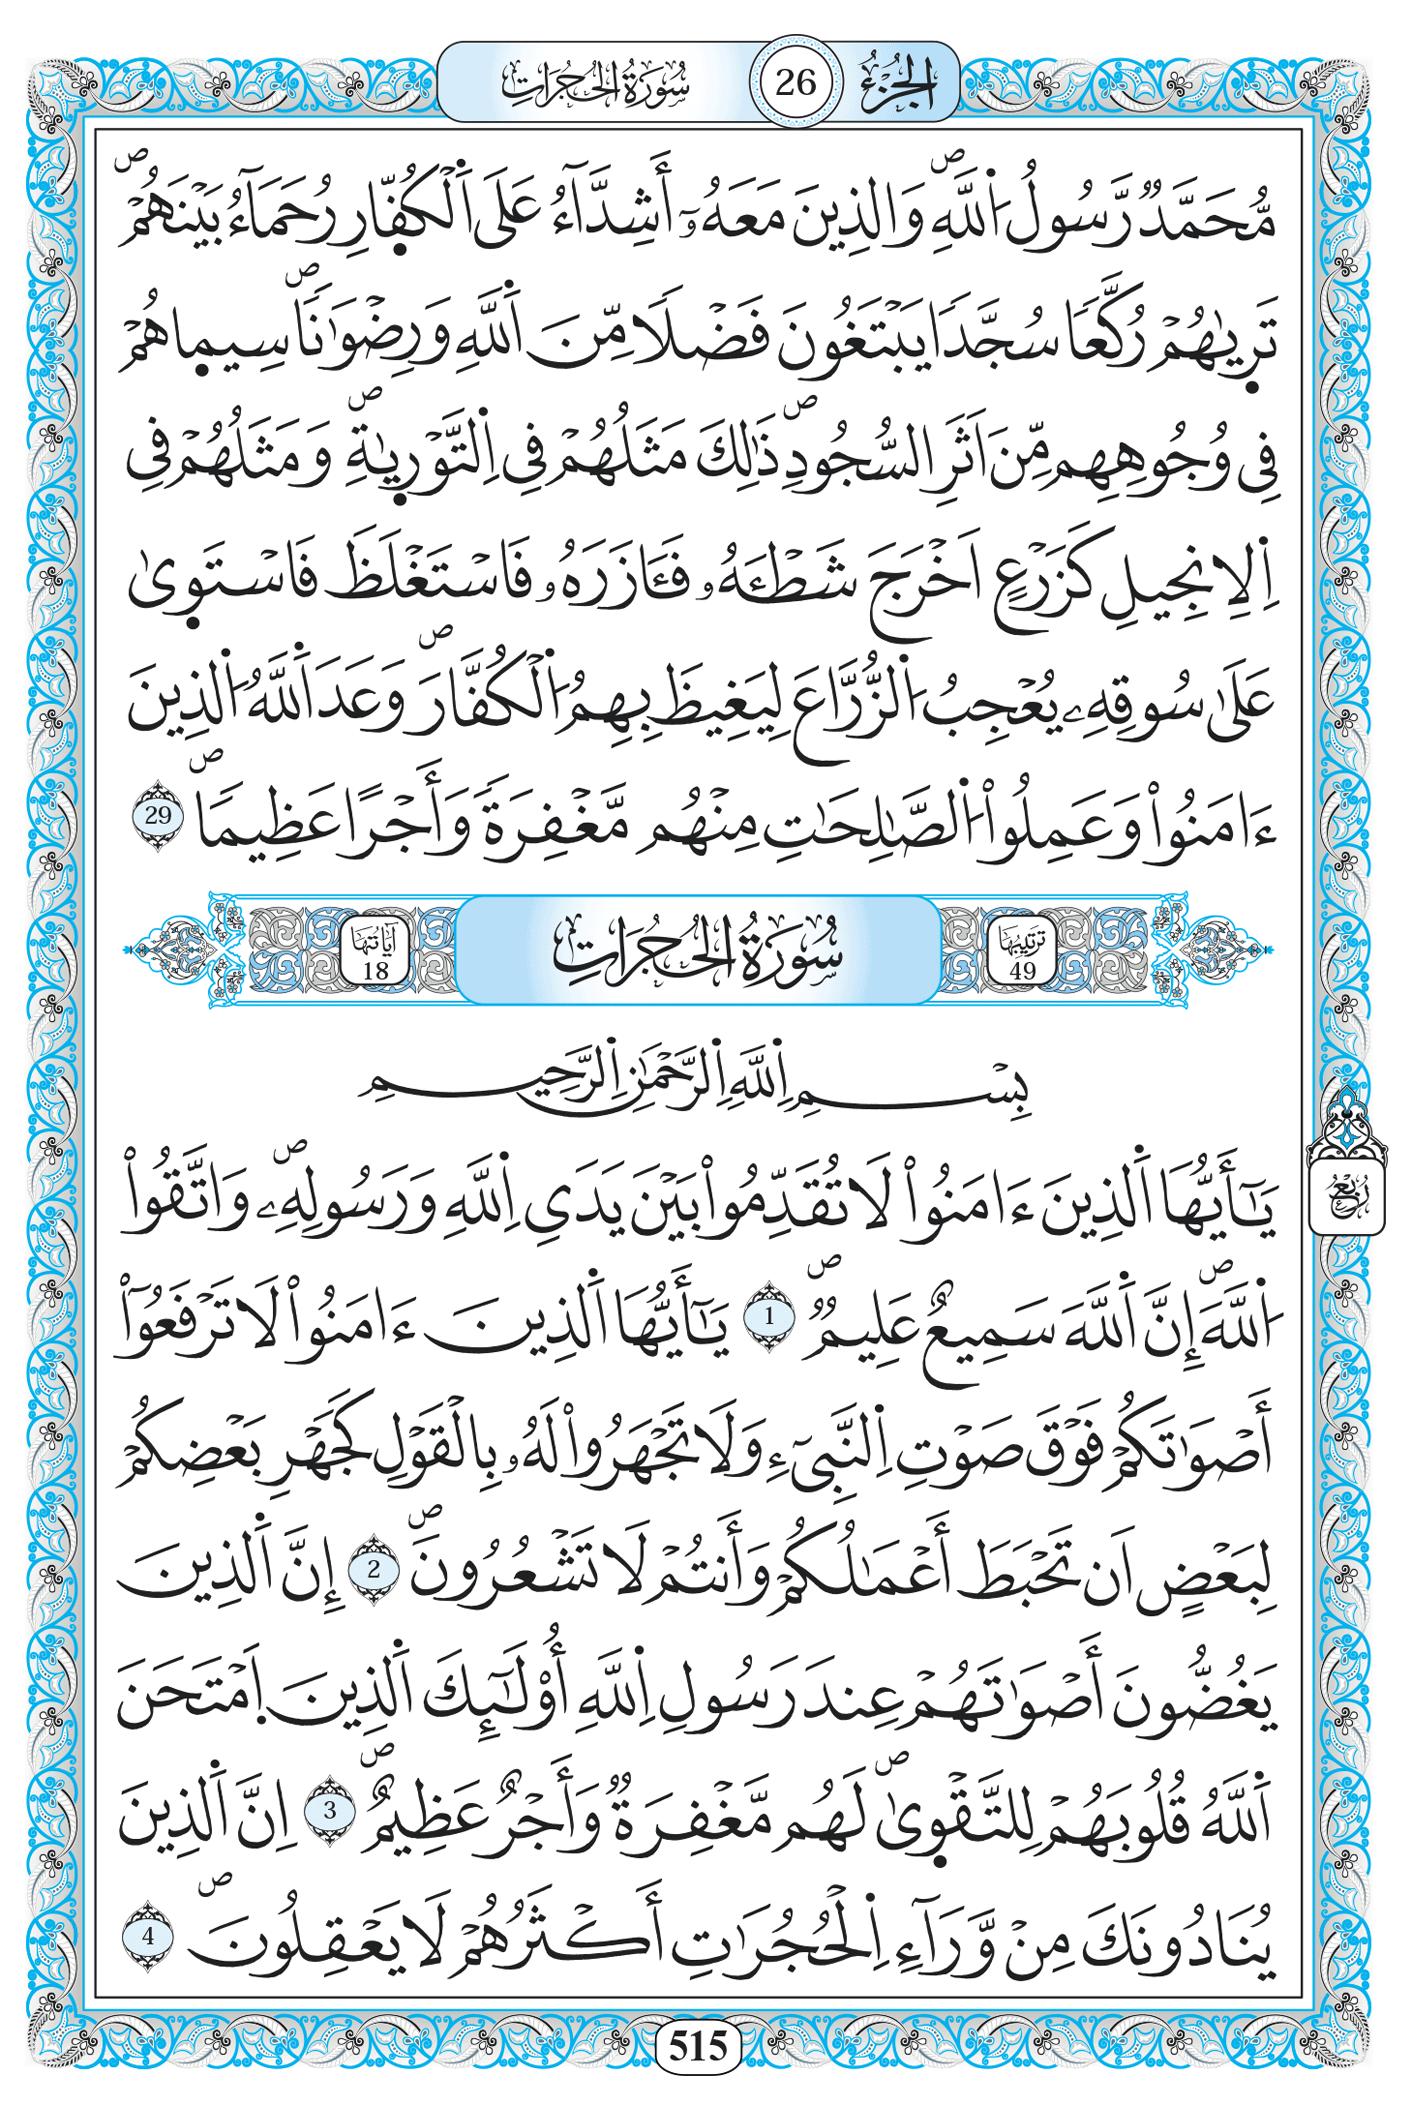 الجزء 26 سورة الحجرات
مُّحَمَّدٞ رَّسُولُ اُ۬للَّهِۖ وَالذِينَ مَعَهُۥٓ أَشِدَّآءُ عَلَى اَ۬لْكُفّ۪ارِ رُحَمَآءُ بَيْنَهُمْۖ
تَر۪يٰهُمْ رُكَّعاٗ سُجَّداٗ يَبْتَغُونَ فَضْلاٗ مِّنَ اَ۬للَّهِ وَرِضْوَٰناٗۖ سِيم۪اهُمْ
فِي وُجُوهِهِم مِّنَ اَثَرِ السُّجُودِۖ ذَٰلِكَ مَثَلُهُمْ فِي اِ۬لتَّوْر۪يٰةِۖ وَمَثَلُهُمْ فِي
اِ۬لِانجِيلِ كَزَرْعٍ اَخْرَجَ شَطْـَٔهُۥ فَـَٔازَرَهُۥ فَاسْتَغْلَظَ فَاسْتَو۪يٰ
عَلَىٰ سُوقِهِۦ يُعْجِبُ اُ۬لزُّرَّاعَ لِيَغِيظَ بِهِمُ اُ۬لْكُفَّارَۖ وَعَدَ اَ۬للَّهُ اُ۬لذِينَ
ءَامَنُواْ وَعَمِلُواْ اُ۬لصَّٰلِحَٰتِ مِنْهُم مَّغْفِرَةٗ وَأَجْراً عَظِيماٗۖ 29
سورة الحجرات
ترتيبها 49 آياتها 18
بِسْمِ اِ۬للَّهِ اِ۬لرَّحْمَٰنِ اِ۬لرَّحِيمِ
يَٰٓأَيُّهَا اَ۬لذِينَ ءَامَنُواْ لَا تُقَدِّمُواْ بَيْنَ يَدَيِ اِ۬للَّهِ وَرَسُولِهِۦۖ وَاتَّقُواْ
اُ۬للَّهَۖ إِنَّ اَ۬للَّهَ سَمِيعٌ عَلِيمٞۖ 1 يَٰٓأَيُّهَا اَ۬لذِينَ ءَامَنُواْ لَا تَرْفَعُوٓاْ
أَصْوَٰتَكُمْ فَوْقَ صَوْتِ اِ۬لنَّبِيٓءِ وَلَا تَجْهَرُواْ لَهُۥ بِالْقَوْلِ كَجَهْرِ بَعْضِكُمْ
لِبَعْضٍ اَن تَحْبَطَ أَعْمَٰلُكُمْ وَأَنتُمْ لَا تَشْعُرُونَۖ 2 إِنَّ اَ۬لذِينَ
يَغُضُّونَ أَصْوَٰتَهُمْ عِندَ رَسُولِ اِ۬للَّهِ أُوْلَٰٓئِكَ اَ۬لذِينَ اَ۪مْتَحَنَ
اَ۬للَّهُ قُلُوبَهُمْ لِلتَّقْو۪يٰۖ لَهُم مَّغْفِرَةٞ وَأَجْرٌ عَظِيمٌۖ 3 اِنَّ اَ۬لذِينَ
يُنَادُونَكَ مِنْ وَّرَآءِ اِ۬لْحُجُرَٰتِ أَكْثَرُهُمْ لَا يَعْقِلُونَۖ 4
ربع
515